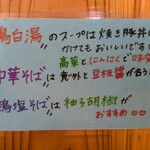 鶏白湯 のスープは焼き豚丼に
かけてもおいしいです
高菜とにんにくで味
中華そばは黄ゆずと豆板醤が合う
鶏塩そばは柚子胡椒が
おすすめ